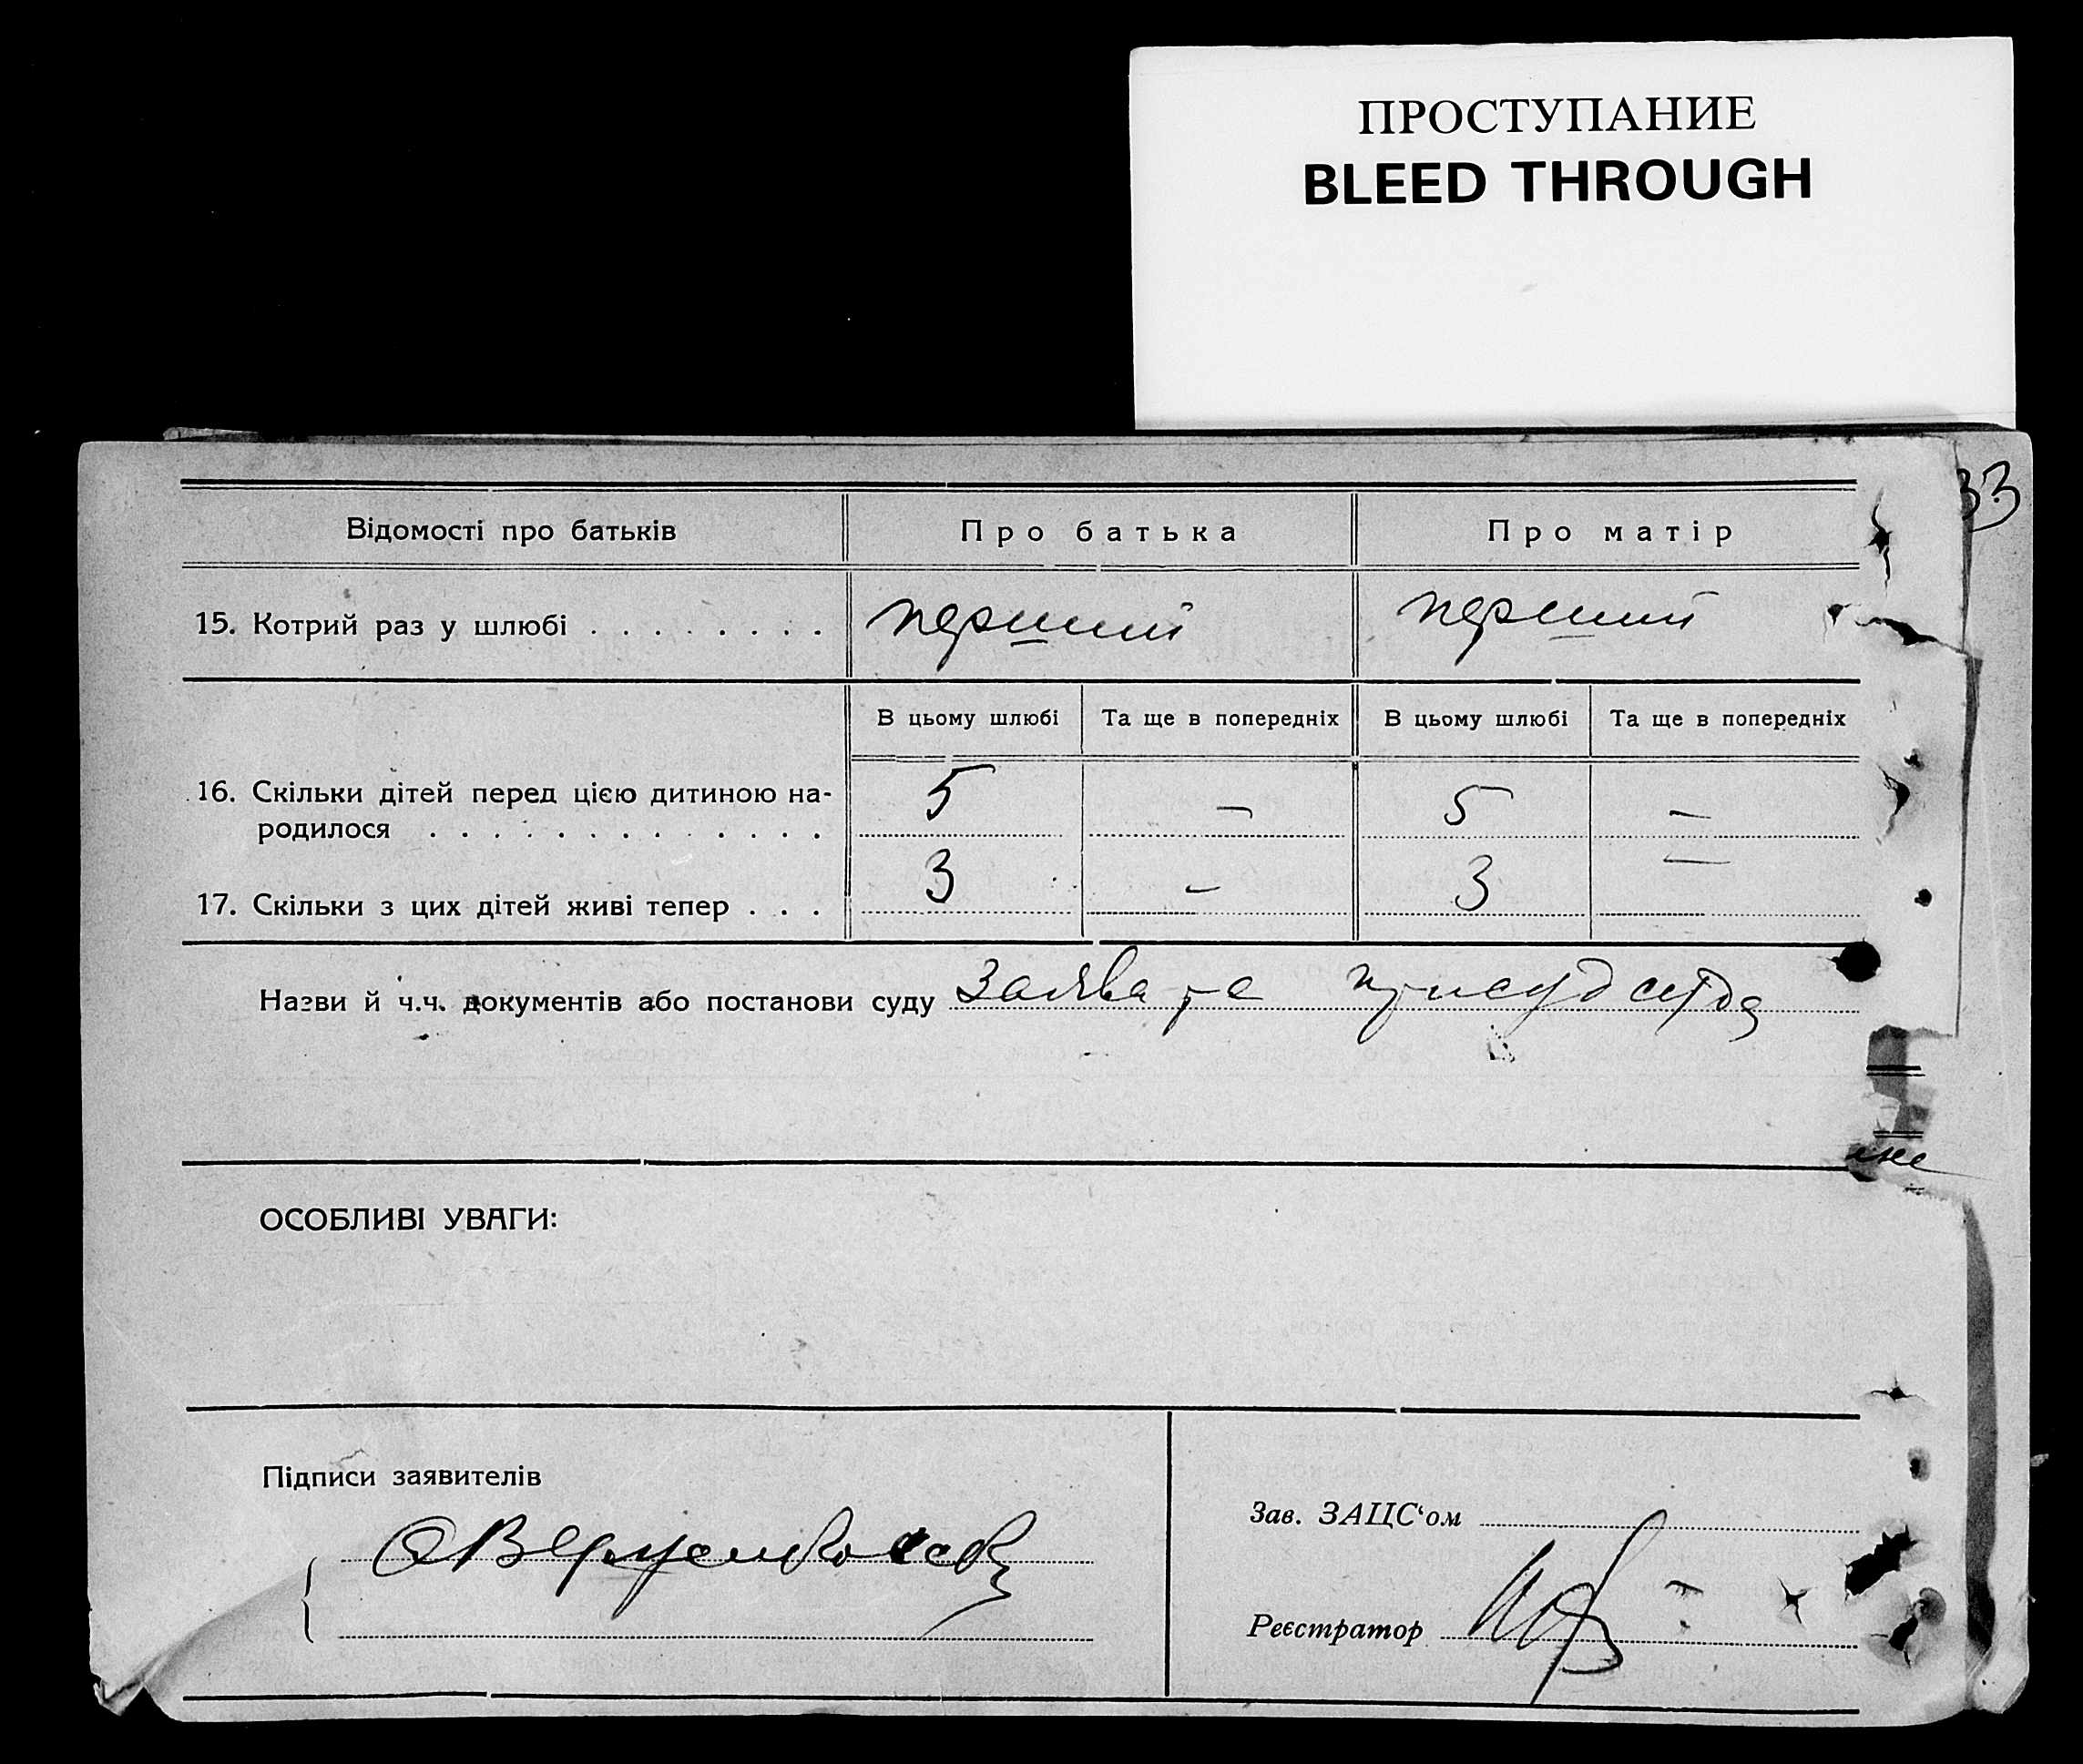 ПРОСТУПАНИЕ
BLEED THROUGH
33
Відомості про батьків Про батька Про матір
15. Котрий раз у шлюбі . . . . . . . . перший перший
В цьому шлюбі Та ще в попередніх В цьому шлюбі Та ще в попередніх
16. Скільки дітей перед цією дитиною на-
родилося . . . . . . . . . . . . . 5 — 5 —
17. Скільки з цих дітей живі тепер . . . 3 — 3 —
Назви й ч.ч. документів або постанови суду Заява та присуд суда
ОСОБЛИВІ УВАГИ:
Підписи заявителів
Зав. ЗАЦС‘ом
Реєстратор